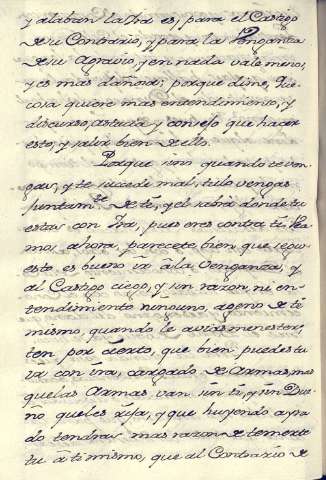 y alaban la Ira es, para el Castigo
de su Contrario, y para la Venganza
de su Agravio, y en nada vale menos,
y es mas dañosa; porque dime, que
cosa quiere mas entendimiento, y
discurso, astucia y consejo que hacer
esto, y salir bien de ello.
Porque sino quando te ven
gas, y te sucede mal, tu lo vengas
juntam.te de ti, y el sabra donde tu
estas con Ira, pues eres contra ti, Vea
mos, ahora, parecete bien que
esto es bueno ir a la venganza, y
al Castigo ciego, y sin razon, ni en
tendimiento ninguno, ageno de ti
mismo, quando le avias menester,
ten por cierto, que bien puedes tu
ir con ira, cargado de Armas, mas
que las Armas van sin ti, y sin Due
ño que les rija, y que huyendo ayra
do tendras mas razon de temerte
tu à ti mismo, que al Contrario de